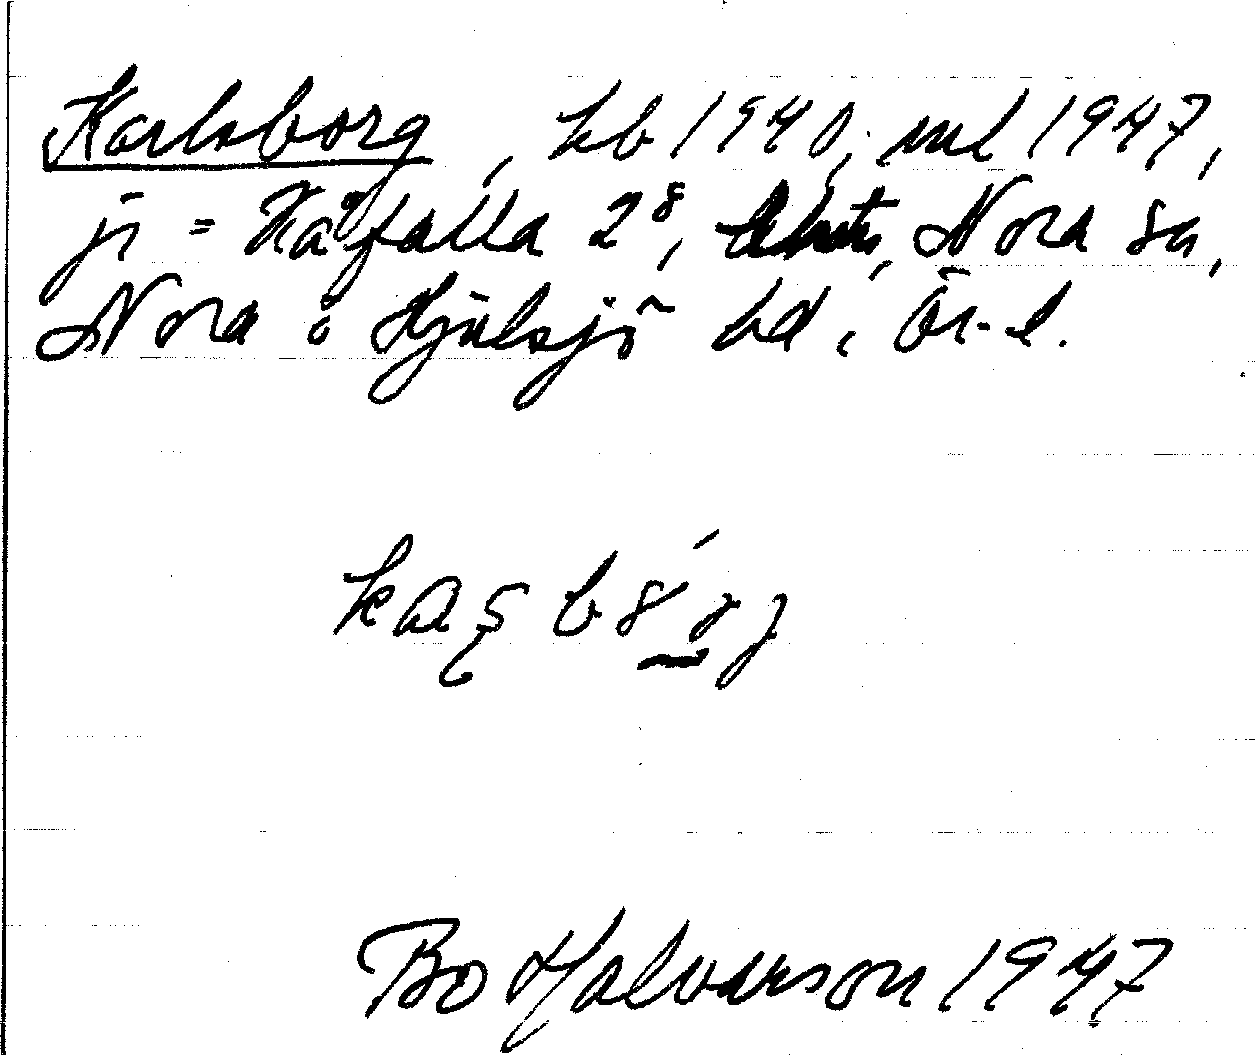 Karlsborg, kb 1940, ml 1947,
jr = Håfalla 2⁸, Nora sn,
Nora o Hjulsjö bd, Ör. l.
Bo Halvarson 1947